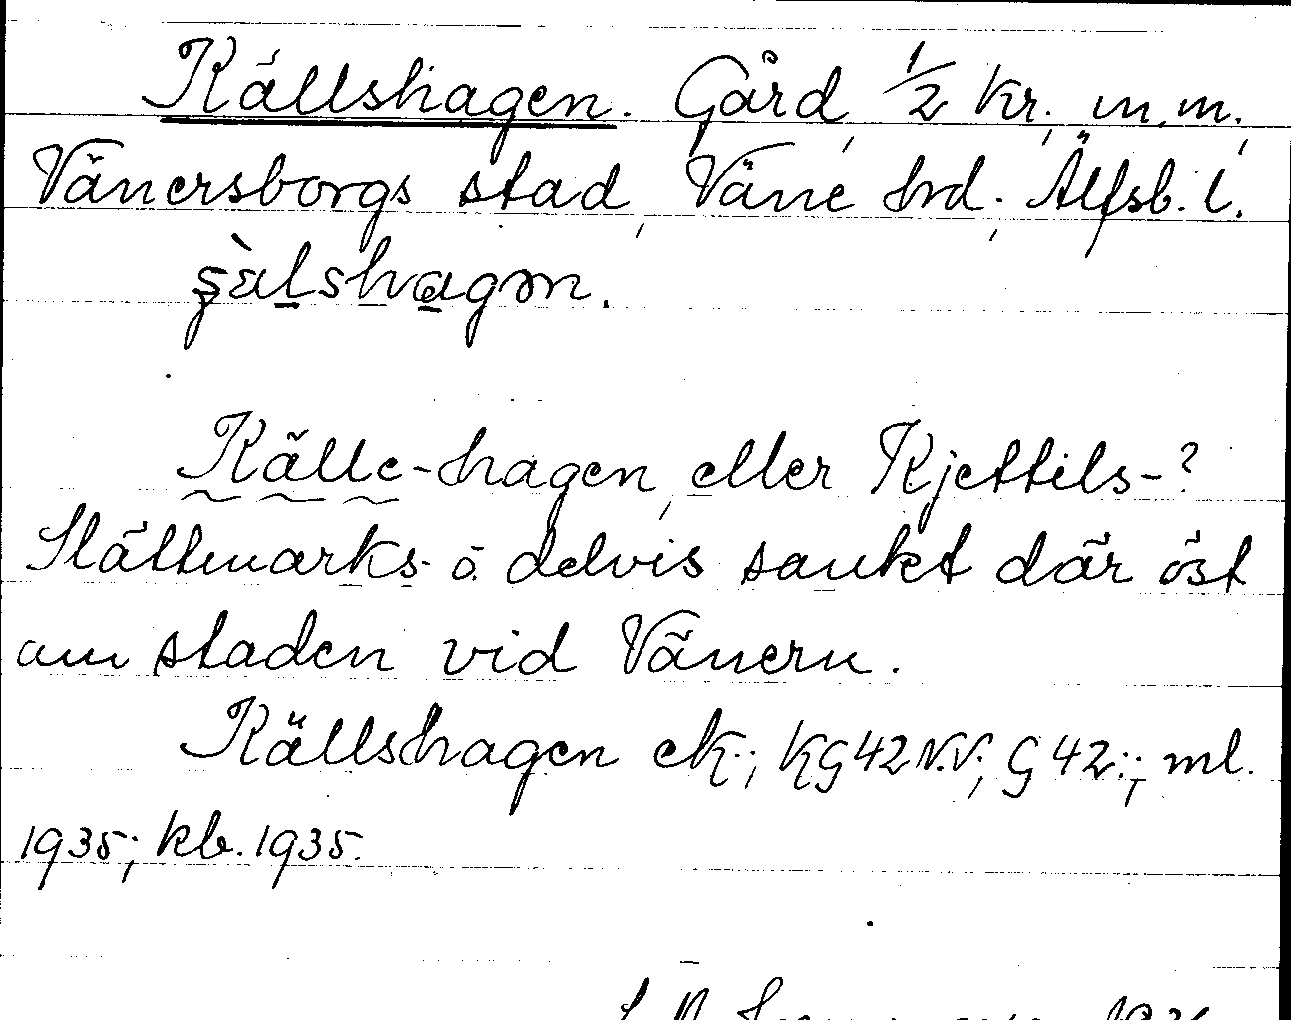 Källshagen. Gård, 1/2 kr.; m.m.;
Vänersborgs stad, Väne hrd.; Älfsb. l.
Källe-hagen, eller Kjettils-?
Slättmarks- o. delvis sankt där öst
om staden vid Vänern.
Källshagen ek.; KG42 N.V.; G42.; ml.
1935; kb. 1935.